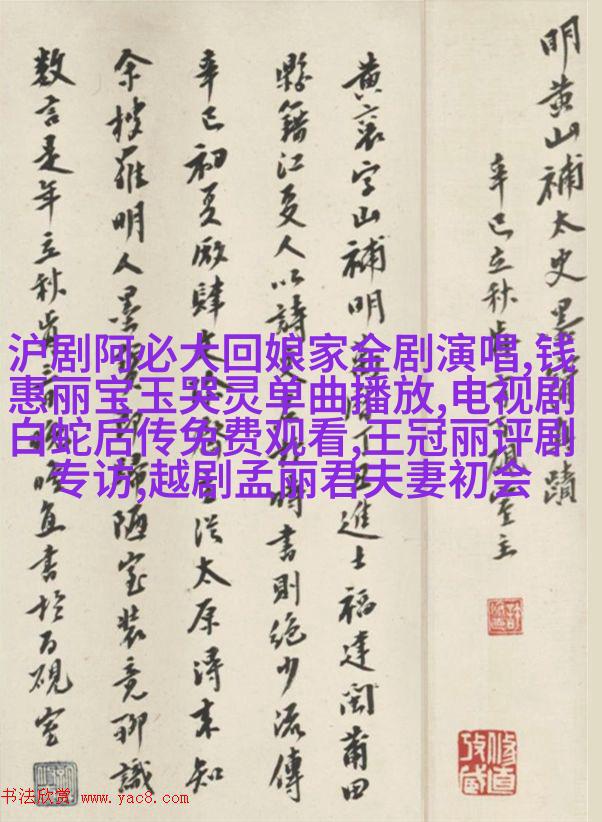 明黄山補太史墨蹟
辛巳立秋主
黄襄字山補明進士福建閩莆田
縣籍江夏人以詩時書則絶少流傳
辛巳初夏厰肆從太原淂来知
余搜羅明人墨歸陋室装竟聊識
数言是年立秋書於百硯室
沪剧阿必大回娘家全剧演唱,钱
惠丽宝玉哭灵单曲播放,电视剧
白蛇后传免费观看,王冠丽评剧
专访,越剧孟丽君夫妻初会
书法欣赏 www.yac8.com